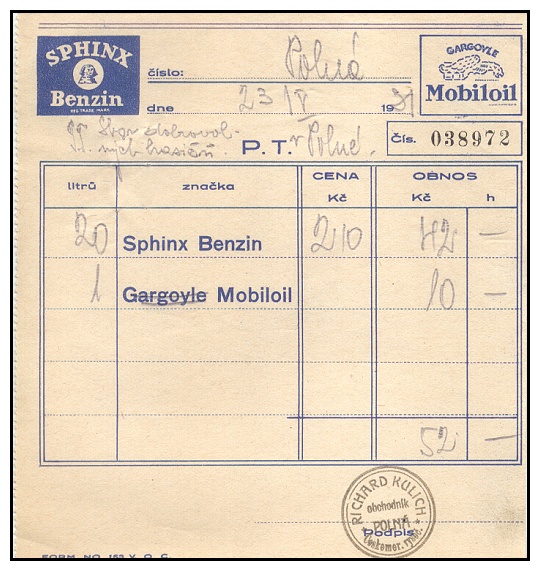 SPHINX
Benzin
REG. TRADE MARK
číslo: Polná
GARGOYLE
Mobiloil
dne 23 IV 1931
Sbor dobrovol-
ných hasičů. P. T. v Polné.
Čís. 038972
litrů značka CENA Kč OBNOS Kč h
20 Sphinx Benzin 210 42 —
1 Gargoyle Mobiloil 10 —
52 —
RICHARD KULICH
obchodník
POLNÁ
Podpis
FORM NO. 153 V. O. C.